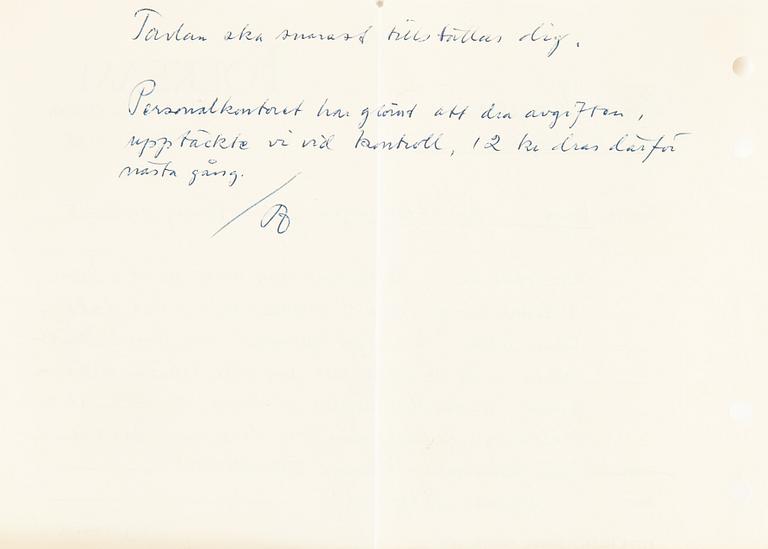 Tavlan ska snarast tillställas dig.
Personalkontoret har glömt att dra avgiften,
upptäckte vi vid kontroll, 12 kr dras därför
nästa gång.
/B